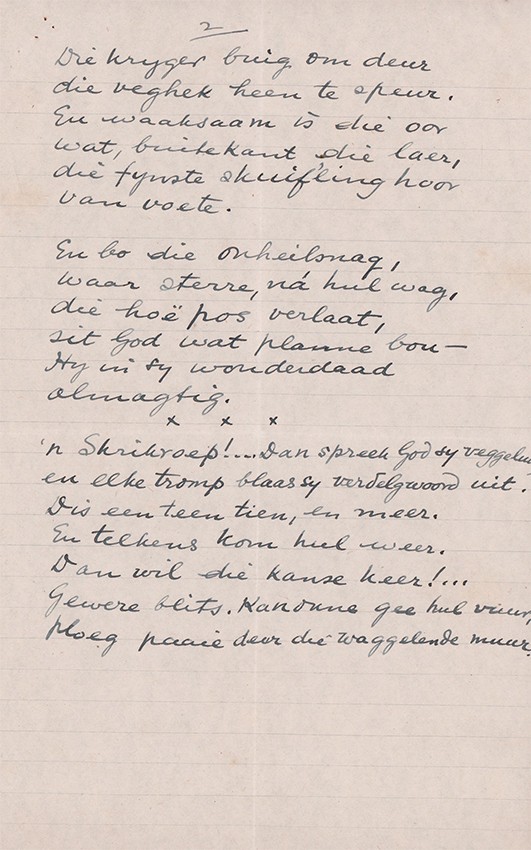 2
Die kryger buig om deur
die veghek heen te speur.
En waaksaam is die oor
wat, buitekant die laer,
die fynste skuif'ling hoor
van voete.
En bo die onheilsnag,
waar sterre, ná hul wag,
die hoë pos verlaat,
sit God wat planne bou—
Hy in sy wonderdaad
almagtig.
x x x
'n Skrikroep!... Dan spreek God sy
en elke tromp blaas sy verdelgwoord uit.
Dis een teen tien, en meer.
En telkens kom hul weer.
Dan wil die kanse keer!...
Gewere blits. Kanonne gee hul vuur,
ploeg paaie deur die waggelende muur.